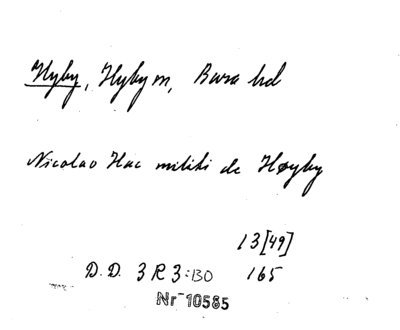 Hyby, Hyby sn, Bara hd
Nicolao Hac militi de Høyby
13[49]
D.D. 3 R 3:130 165
Nr 10585